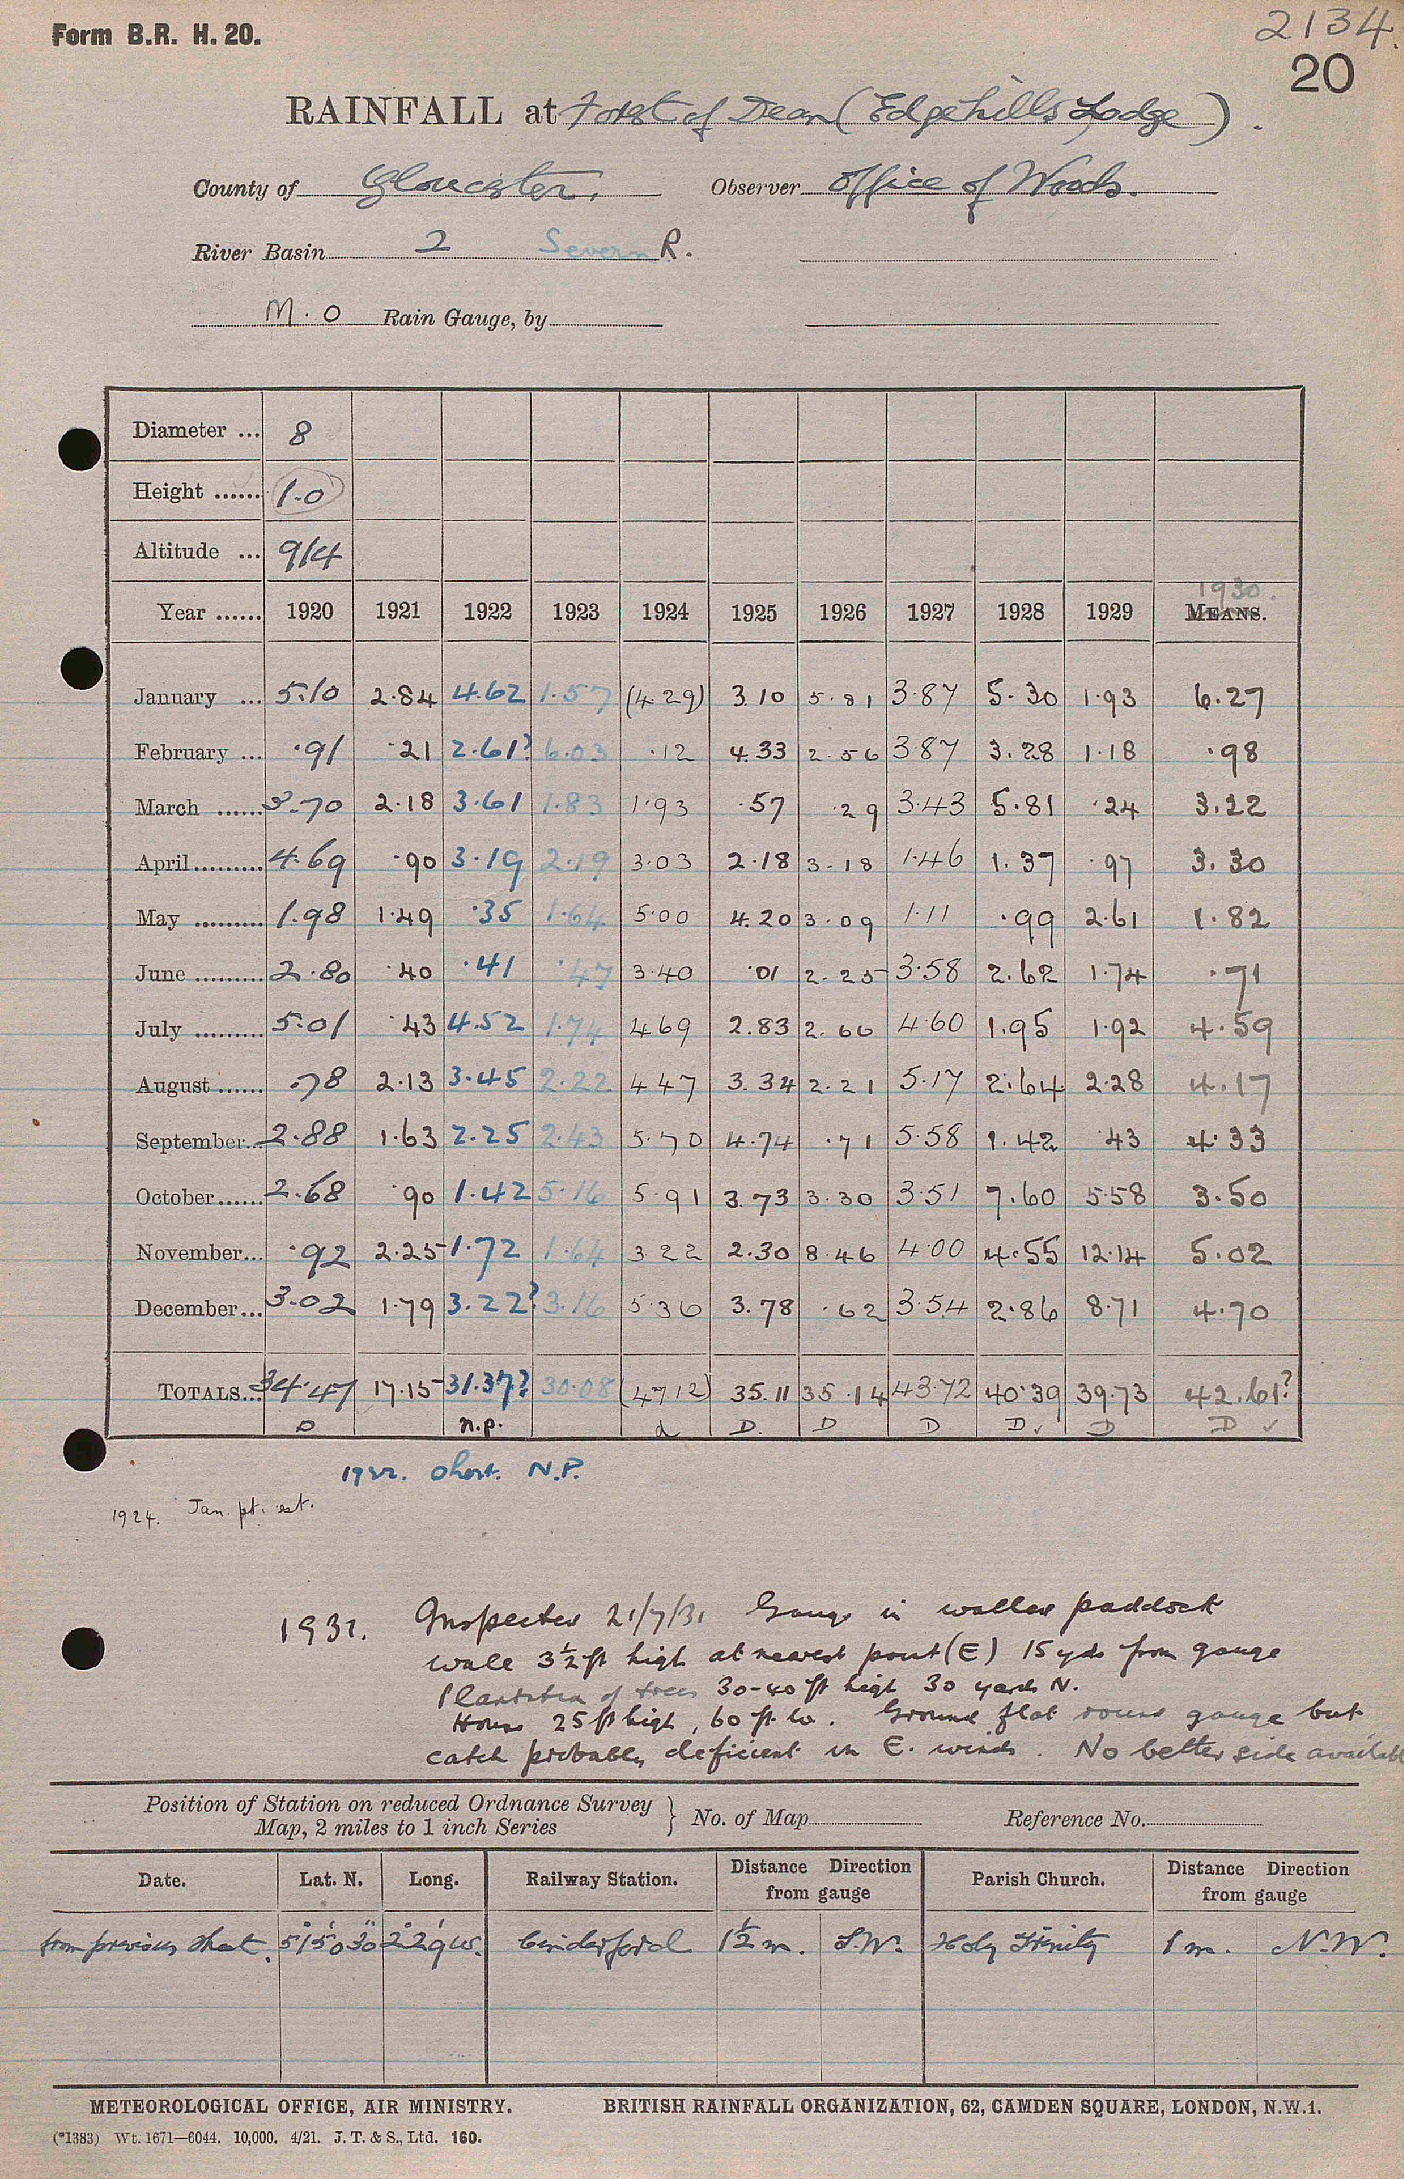 Form B.R. H. 20.
2134.
20
RAINFALL at Forest of Dean (Edgehills Lodge).
County of Gloucester. Observer Office of Woods.
River Basin 2 Severn R.
M.O Rain Gauge, by
Diameter ... 8
Height ...... 1.0
Altitude ... 914
1930.
Year ...... 1920 1921 1922 1923 1924 1925 1926 1927 1928 1929 MEANS.
January ... 5.10 2.84 4.62 1.57 (4.29) 3.10 5.81 3.87 5.30 1.93 6.27
February ... .91 .21 2.61? 6.03 .12 4.33 2.56 3.87 3.28 1.18 .98
March ...... 3.70 2.18 3.61 1.83 1.93 .57 .29 3.43 5.81 .24 3.22
April ......... 4.69 .90 3.19 2.19 3.03 2.18 3.18 1.46 1.37 .97 3.30
May ......... 1.98 1.49 .35 1.64 5.00 4.20 3.09 1.11 .99 2.61 1.82
June ......... 2.80 .40 .41 .47 3.40 .01 2.25 3.58 2.62 1.74 .71
July ......... 5.01 .43 4.52 1.74 4.69 2.83 2.66 4.60 1.95 1.92 4.59
August ...... .78 2.13 3.45 2.22 4.47 3.34 2.21 5.17 2.64 2.28 4.17
September... 2.88 1.63 2.25 2.43 5.70 4.74 .71 5.58 1.42 .43 4.33
October...... 2.68 .90 1.42 5.16 5.91 3.73 3.30 3.51 7.60 5.58 3.50
November... .92 2.25 1.72 1.64 3.22 2.30 8.46 4.00 4.55 12.14 5.02
December... 3.02 1.79 3.22? 3.16 5.36 3.78 .62 3.54 2.86 8.71 4.70
TOTALS... 34.47 17.15 31.37? 30.08 (47.12) 35.11 35.14 43.72 40.39 39.73 42.61?
D n.p. d D. D D D ✓ D D ✓
1922. Short. N.P.
1924. Jan. pt. est.
1931. Inspected 21/7/31 Gauge in walled paddock
wall 3½ ft high at nearest point (E) 15 yds from gauge
Plantation of trees 30-40 ft high 30 yards N.
House 25 ft high, 60 ft W. Ground flat round gauge but
catch probably deficient in E. winds. No better side available
Position of Station on reduced Ordnance Survey
Map, 2 miles to 1 inch Series
No. of Map Reference No.
Date. Lat. N. Long. Railway Station. Distance Direction from gauge Parish Church. Distance Direction from gauge
from previous sheet. 51° 50' 30" 2° 29' W. Cinderford 1½ m. S.W. Holy Trinity 1 m. N.W.
METEOROLOGICAL OFFICE, AIR MINISTRY. BRITISH RAINFALL ORGANIZATION, 62, CAMDEN SQUARE, LONDON, N.W.1.
(*1383) Wt. 1671—6044. 10,000. 4/21. J. T. & S., Ltd. 160.